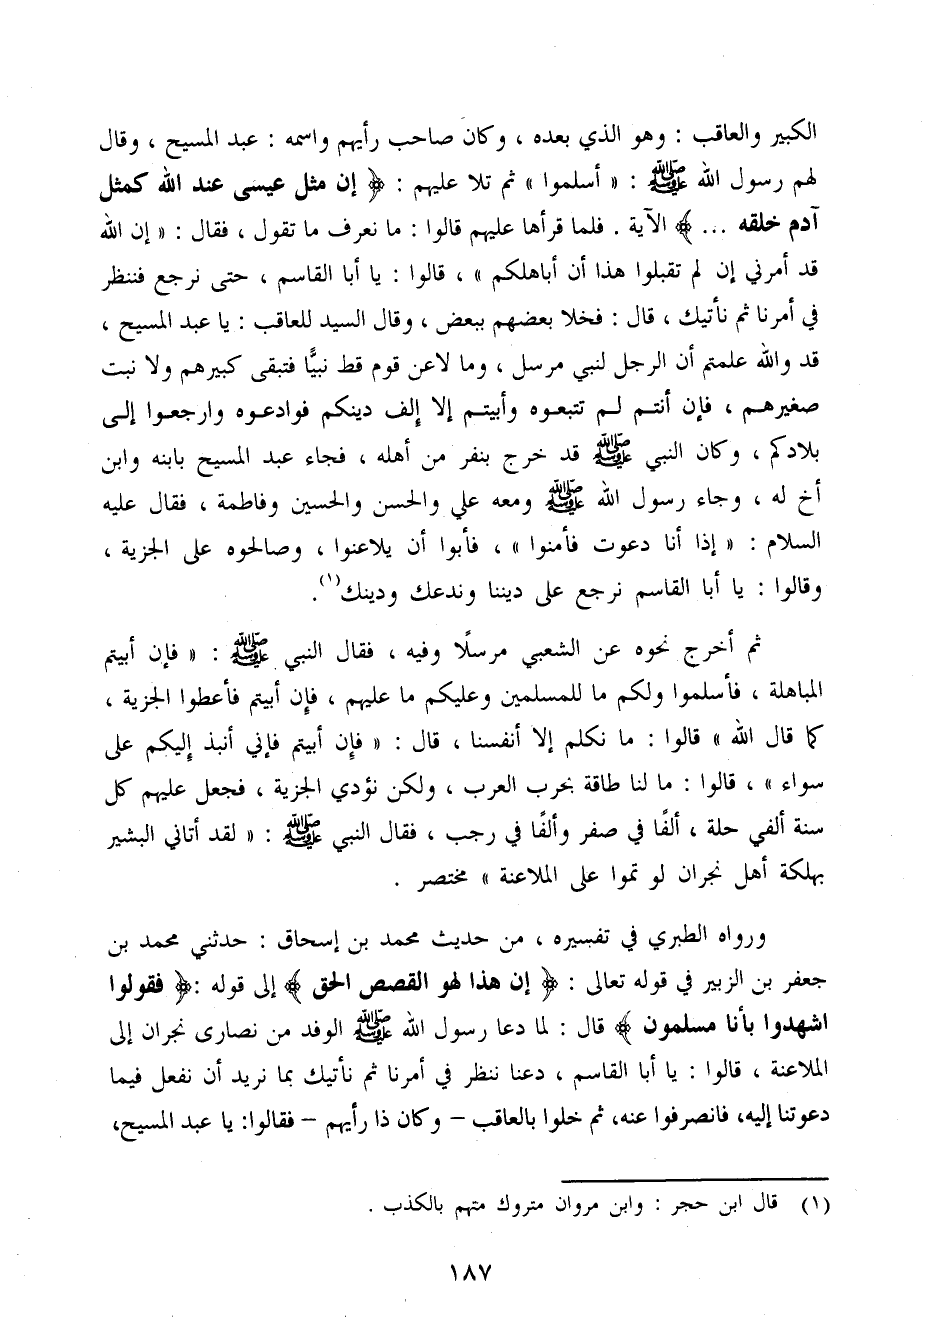 الكبير والعاقب : وهو الذي بعده ، وكان صاحب رأيهم واسمه : عبد المسيح ، وقال
لهم رسول الله ﷺ : « أسلموا » ثم تلا عليهم : ﴿ إن مثل عيسى عند الله كمثل
آدم خلقه ... ﴾ الآية . فلما قرأها عليهم قالوا : ما نعرف ما تقول ، فقال : « إن الله
قد أمرني إن لم تقبلوا هذا أن أباهلكم » ، قالوا : يا أبا القاسم ، حتى نرجع فننظر
في أمرنا ثم نأتيك ، قال : فخلا بعضهم ببعض ، وقال السيد للعاقب : يا عبد المسيح ،
قد والله علمتم أن الرجل لنبي مرسل ، وما لاعن قوم قط نبيًّا فتبقى كبيرهم ولا نبت
صغيرهم ، فإن أنتم لم تتبعوه وأبيتم إلا إلف دينكم فوادعوه وارجعوا إلى
بلادكم ، وكان النبي ﷺ قد خرج بنفر من أهله ، فجاء عبد المسيح بابنه وابن
أخ له ، وجاء رسول الله ﷺ ومعه علي والحسن والحسين وفاطمة ، فقال عليه
السلام : « إذا أنا دعوت فأمنوا » ، فأبوا أن يلاعنوا ، وصالحوه على الجزية ،
وقالوا : يا أبا القاسم نرجع على ديننا وندعك ودينك(١).
ثم أخرج نحوه عن الشعبي مرسلًا وفيه ، فقال النبي ﷺ : « فإن أبيتم
المباهلة ، فأسلموا ولكم ما للمسلمين وعليكم ما عليهم ، فإن أبيتم فأعطوا الجزية ،
كما قال الله » قالوا : ما نكلم إلا أنفسنا ، قال : « فإن أبيتم فإني أنبذ إليكم على
سواء » ، قالوا : ما لنا طاقة بحرب العرب ، ولكن نؤدي الجزية ، فجعل عليهم كل
سنة ألفي حلة ، ألفًا في صفر وألفًا في رجب ، فقال النبي ﷺ : « لقد أتاني البشير
بهلكة أهل نجران لو تموا على الملاعنة » مختصر .
ورواه الطبري في تفسيره ، من حديث محمد بن إسحاق : حدثني محمد بن
جعفر بن الزبير في قوله تعالى : ﴿ إن هذا لهو القصص الحق ﴾ إلى قوله :﴿ فقولوا
اشهدوا بأنا مسلمون ﴾ قال : لما دعا رسول الله ﷺ الوفد من نصارى نجران إلى
الملاعنة ، قالوا : يا أبا القاسم ، دعنا ننظر في أمرنا ثم نأتيك بما نريد أن نفعل فيما
دعوتنا إليه، فانصرفوا عنه، ثم خلوا بالعاقب – وكان ذا رأيهم – فقالوا: يا عبد المسيح،
(١) قال ابن حجر : وابن مروان متروك متهم بالكذب .
١٨٧